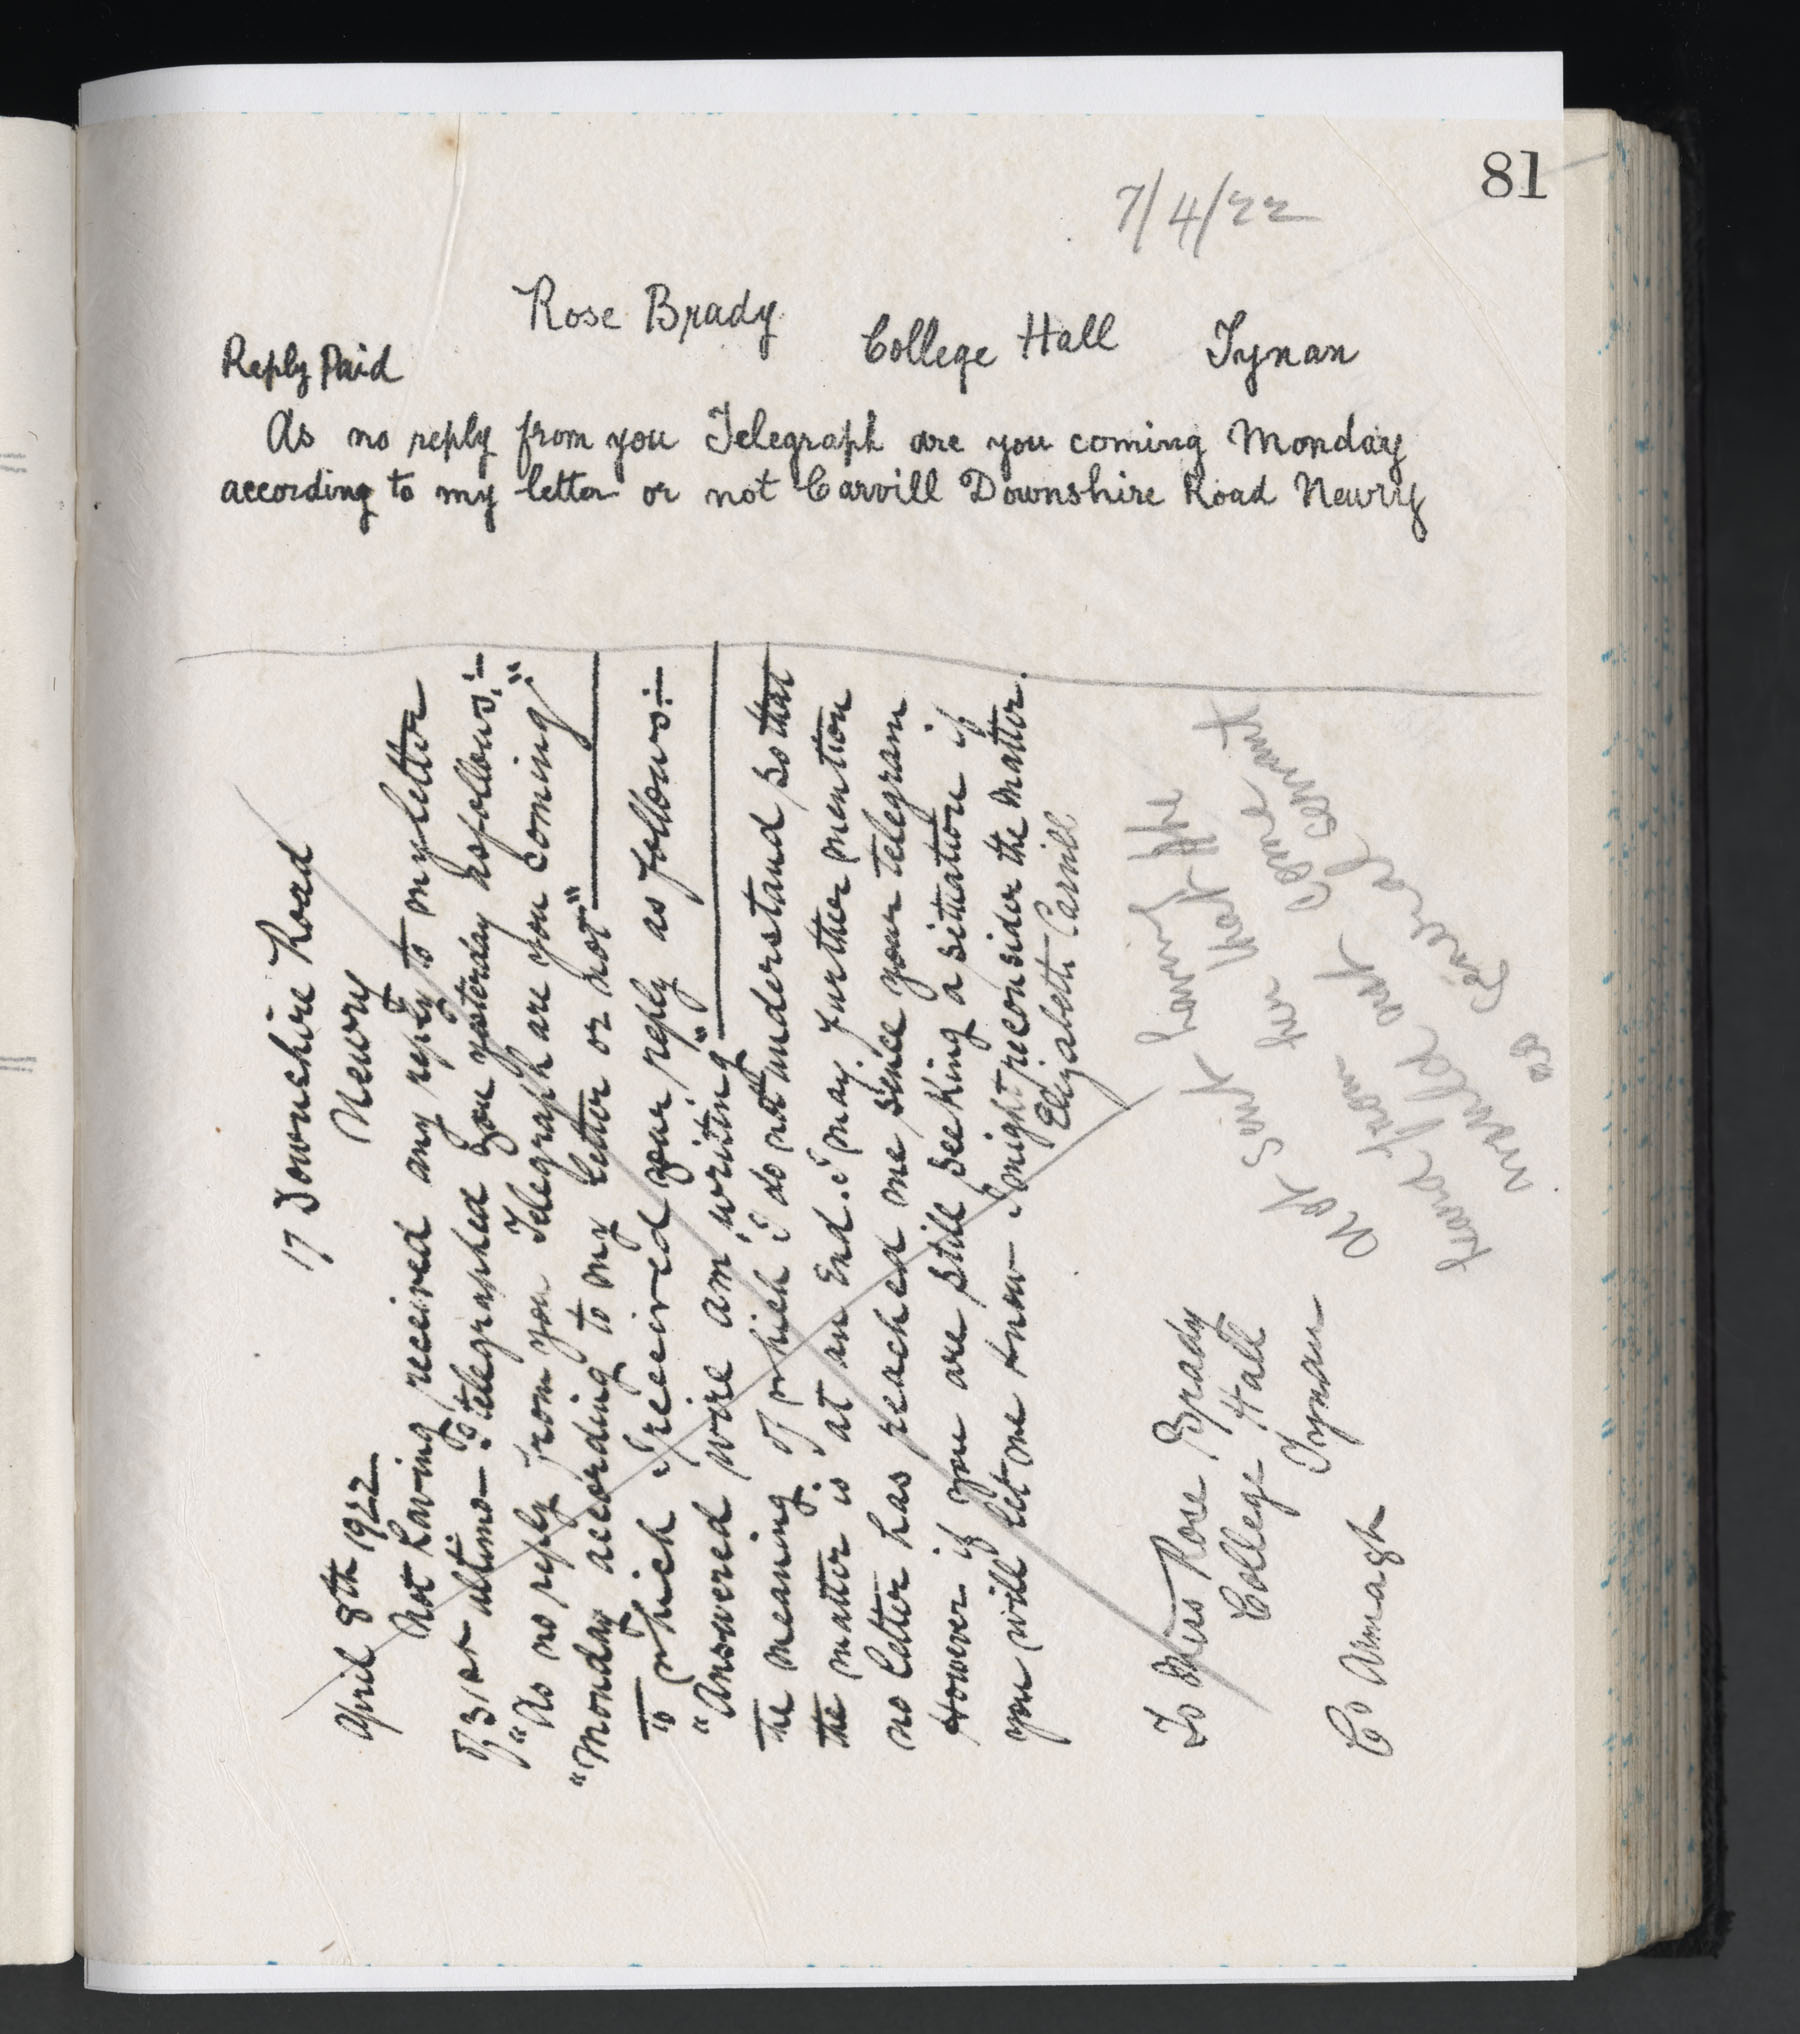 81
7/4/22
Rose Brady
College Hall Tynan
Reply Paid
As no reply from you Telegraph are you coming Monday
according to my letter or not Carvill Downshire Road Newry
17 Downshire Road
Newry
April 8th 1922
Not having received any reply to my letter
of 31st ultimo - I telegraphed you yesterday as follows:-
"As no reply from you Telegraph are you coming"
"Monday according to my letter or not"
to which I received your reply as follows:-
"Answered wire am writing"
the meaning of which I do not understand so that
the matter is at an End. I may further mention
no letter has reached me since your telegram
However if you are still seeking a situation if
you will let me know I might reconsider the matter.
Elizabeth Carvill
To Miss Rose Brady
College Hall
Tynan
Co Armagh
Not sent having
heard from her that she
would not come
as General servant